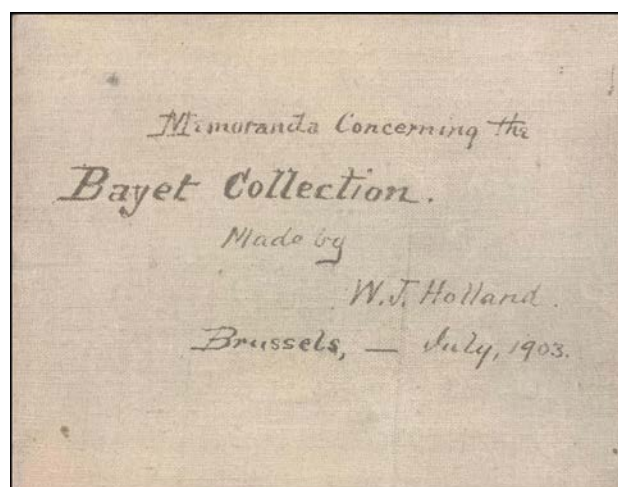 Memoranda Concerning the
Bayet Collection.
Made by
W. J. Holland.
Brussels, — July, 1903.